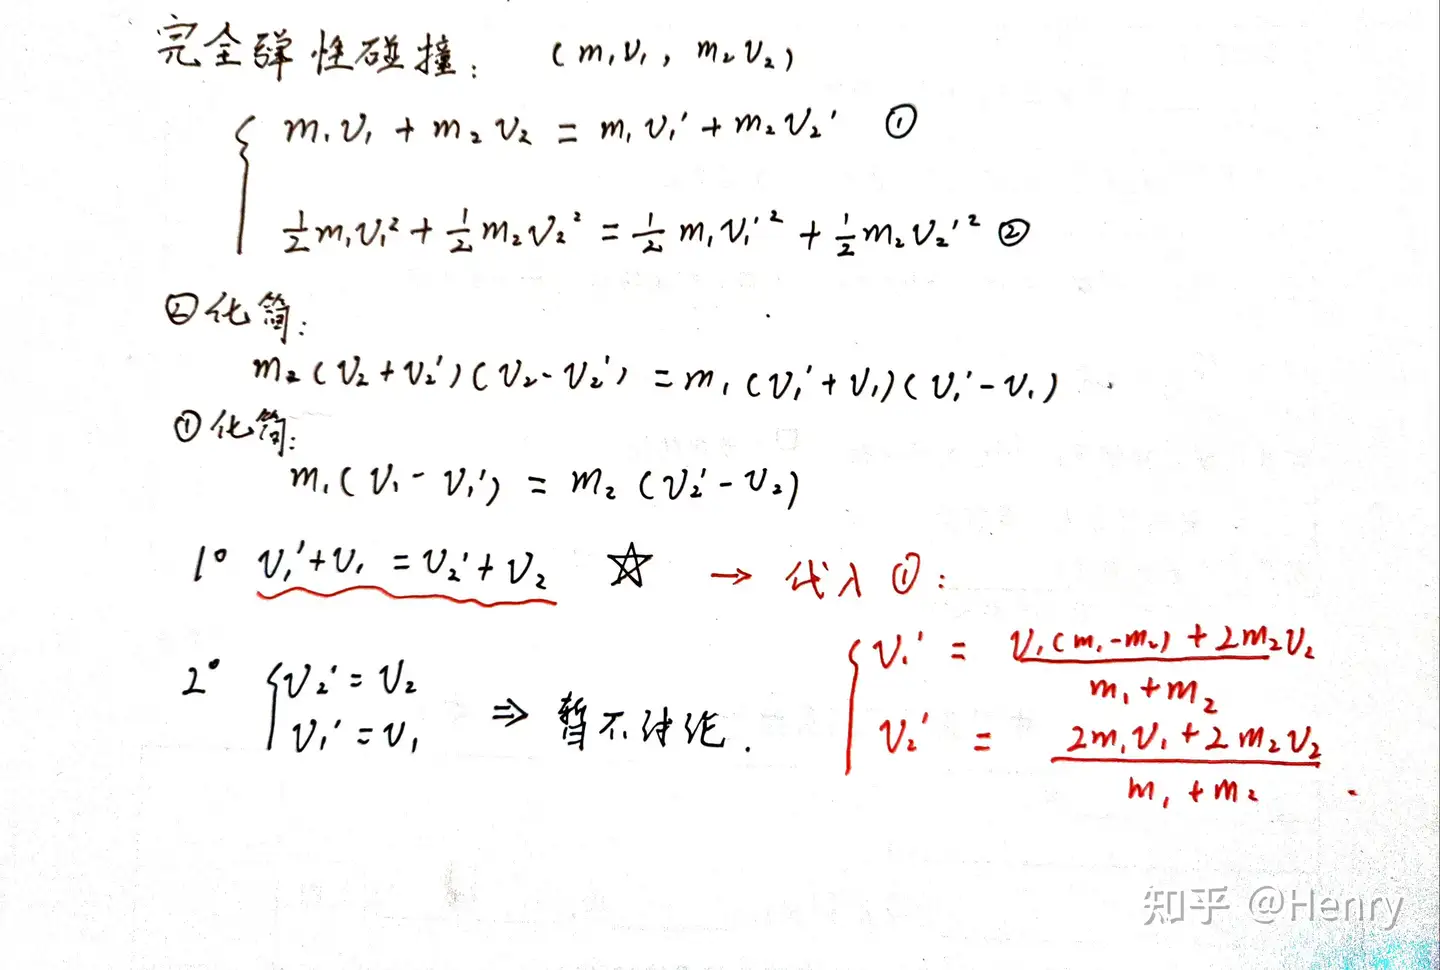 完全弹性碰撞: (m₁v₁, m₂v₂)
m₁v₁ + m₂v₂ = m₁v₁' + m₂v₂' ①
½m₁v₁² + ½m₂v₂² = ½m₁v₁'² + ½m₂v₂'² ②
②化简:
m₂(v₂+v₂')(v₂-v₂') = m₁(v₁'+v₁)(v₁'-v₁)
①化简:
m₁(v₁-v₁') = m₂(v₂'-v₂)
1° v₁'+v₁ = v₂'+v₂ ☆ → 代入①:
v₁' = (v₁(m₁-m₂)+2m₂v₂)/(m₁+m₂)
2° { v₂'=v₂
v₁'=v₁ ⇒ 暂不讨论.
v₂' = (2m₁v₁+2m₂v₂)/(m₁+m₂)
知乎 @Henry